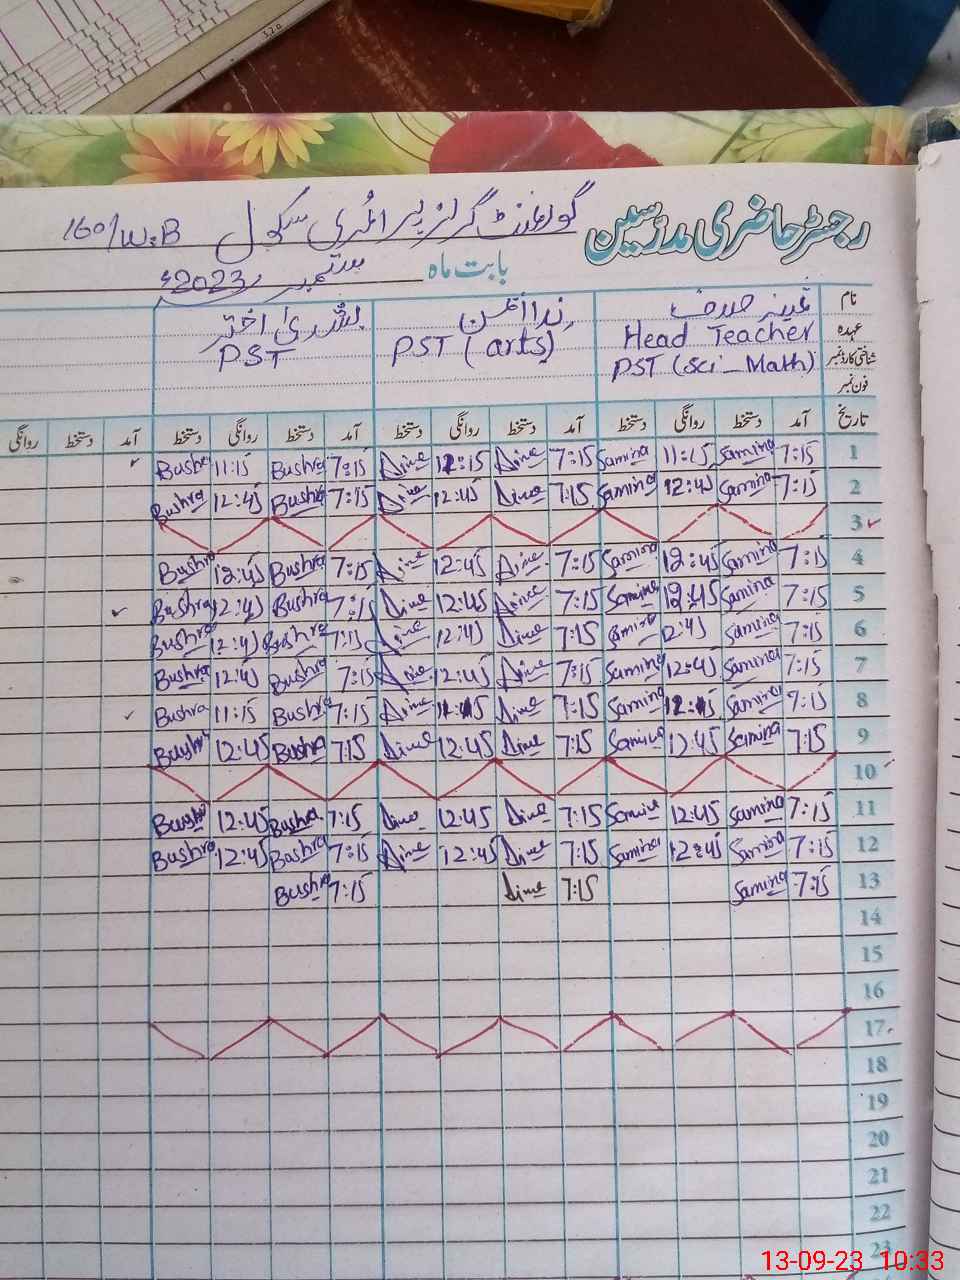 رجسٹر حاضری مدرسین گورنمنٹ گرلز پرائمری سکول 160/W.B
بابت ماہ ستمبر 2023ء
نام بشریٰ اختر
عہدہ Head Teacher PST (arts) PST
شناختی کارڈ نمبر PST (Sci_Math)
فون نمبر
تاریخ آمد دستخط روانگی دستخط آمد دستخط روانگی دستخط آمد دستخط روانگی دستخط آمد دستخط روانگی
1 7:15 Samina 11:15 Samina 7:15 12:15 7:15 Bushra 11:15 Bushra
2 7:15 Samina 12:45 Samina 7:15 12:45 7:15 Bushra 12:45 Bushra
3
4 7:15 Samina 12:45 Samina 7:15 12:45 7:15 Bushra 12:45 Bushra
5 7:15 Samina 12:45 Samina 7:15 12:45 7:15 Bushra 12:45 Bushra
6 7:15 Samina 12:45 Samina 7:15 12:45 7:15 Bushra 12:45 Bushra
7 7:15 Samina 12:45 Samina 7:15 12:45 7:15 Bushra 12:45 Bushra
8 7:15 Samina Samina 7:15 7:15 Bushra 11:15 Bushra
9 7:15 Samina 12:45 Samina 7:15 12:45 7:15 Bushra 12:45 Bushra
10
11 7:15 Samina 12:45 Samina 7:15 12:45 7:15 Bushra 12:45 Bushra
12 7:15 Samina 12:45 Samina 7:15 12:45 7:15 Bushra 12:45 Bushra
13 7:15 Samina 7:15 7:15 Bushra
14
15
16
17
18
19
20
21
22
23
13-09-23 10:33